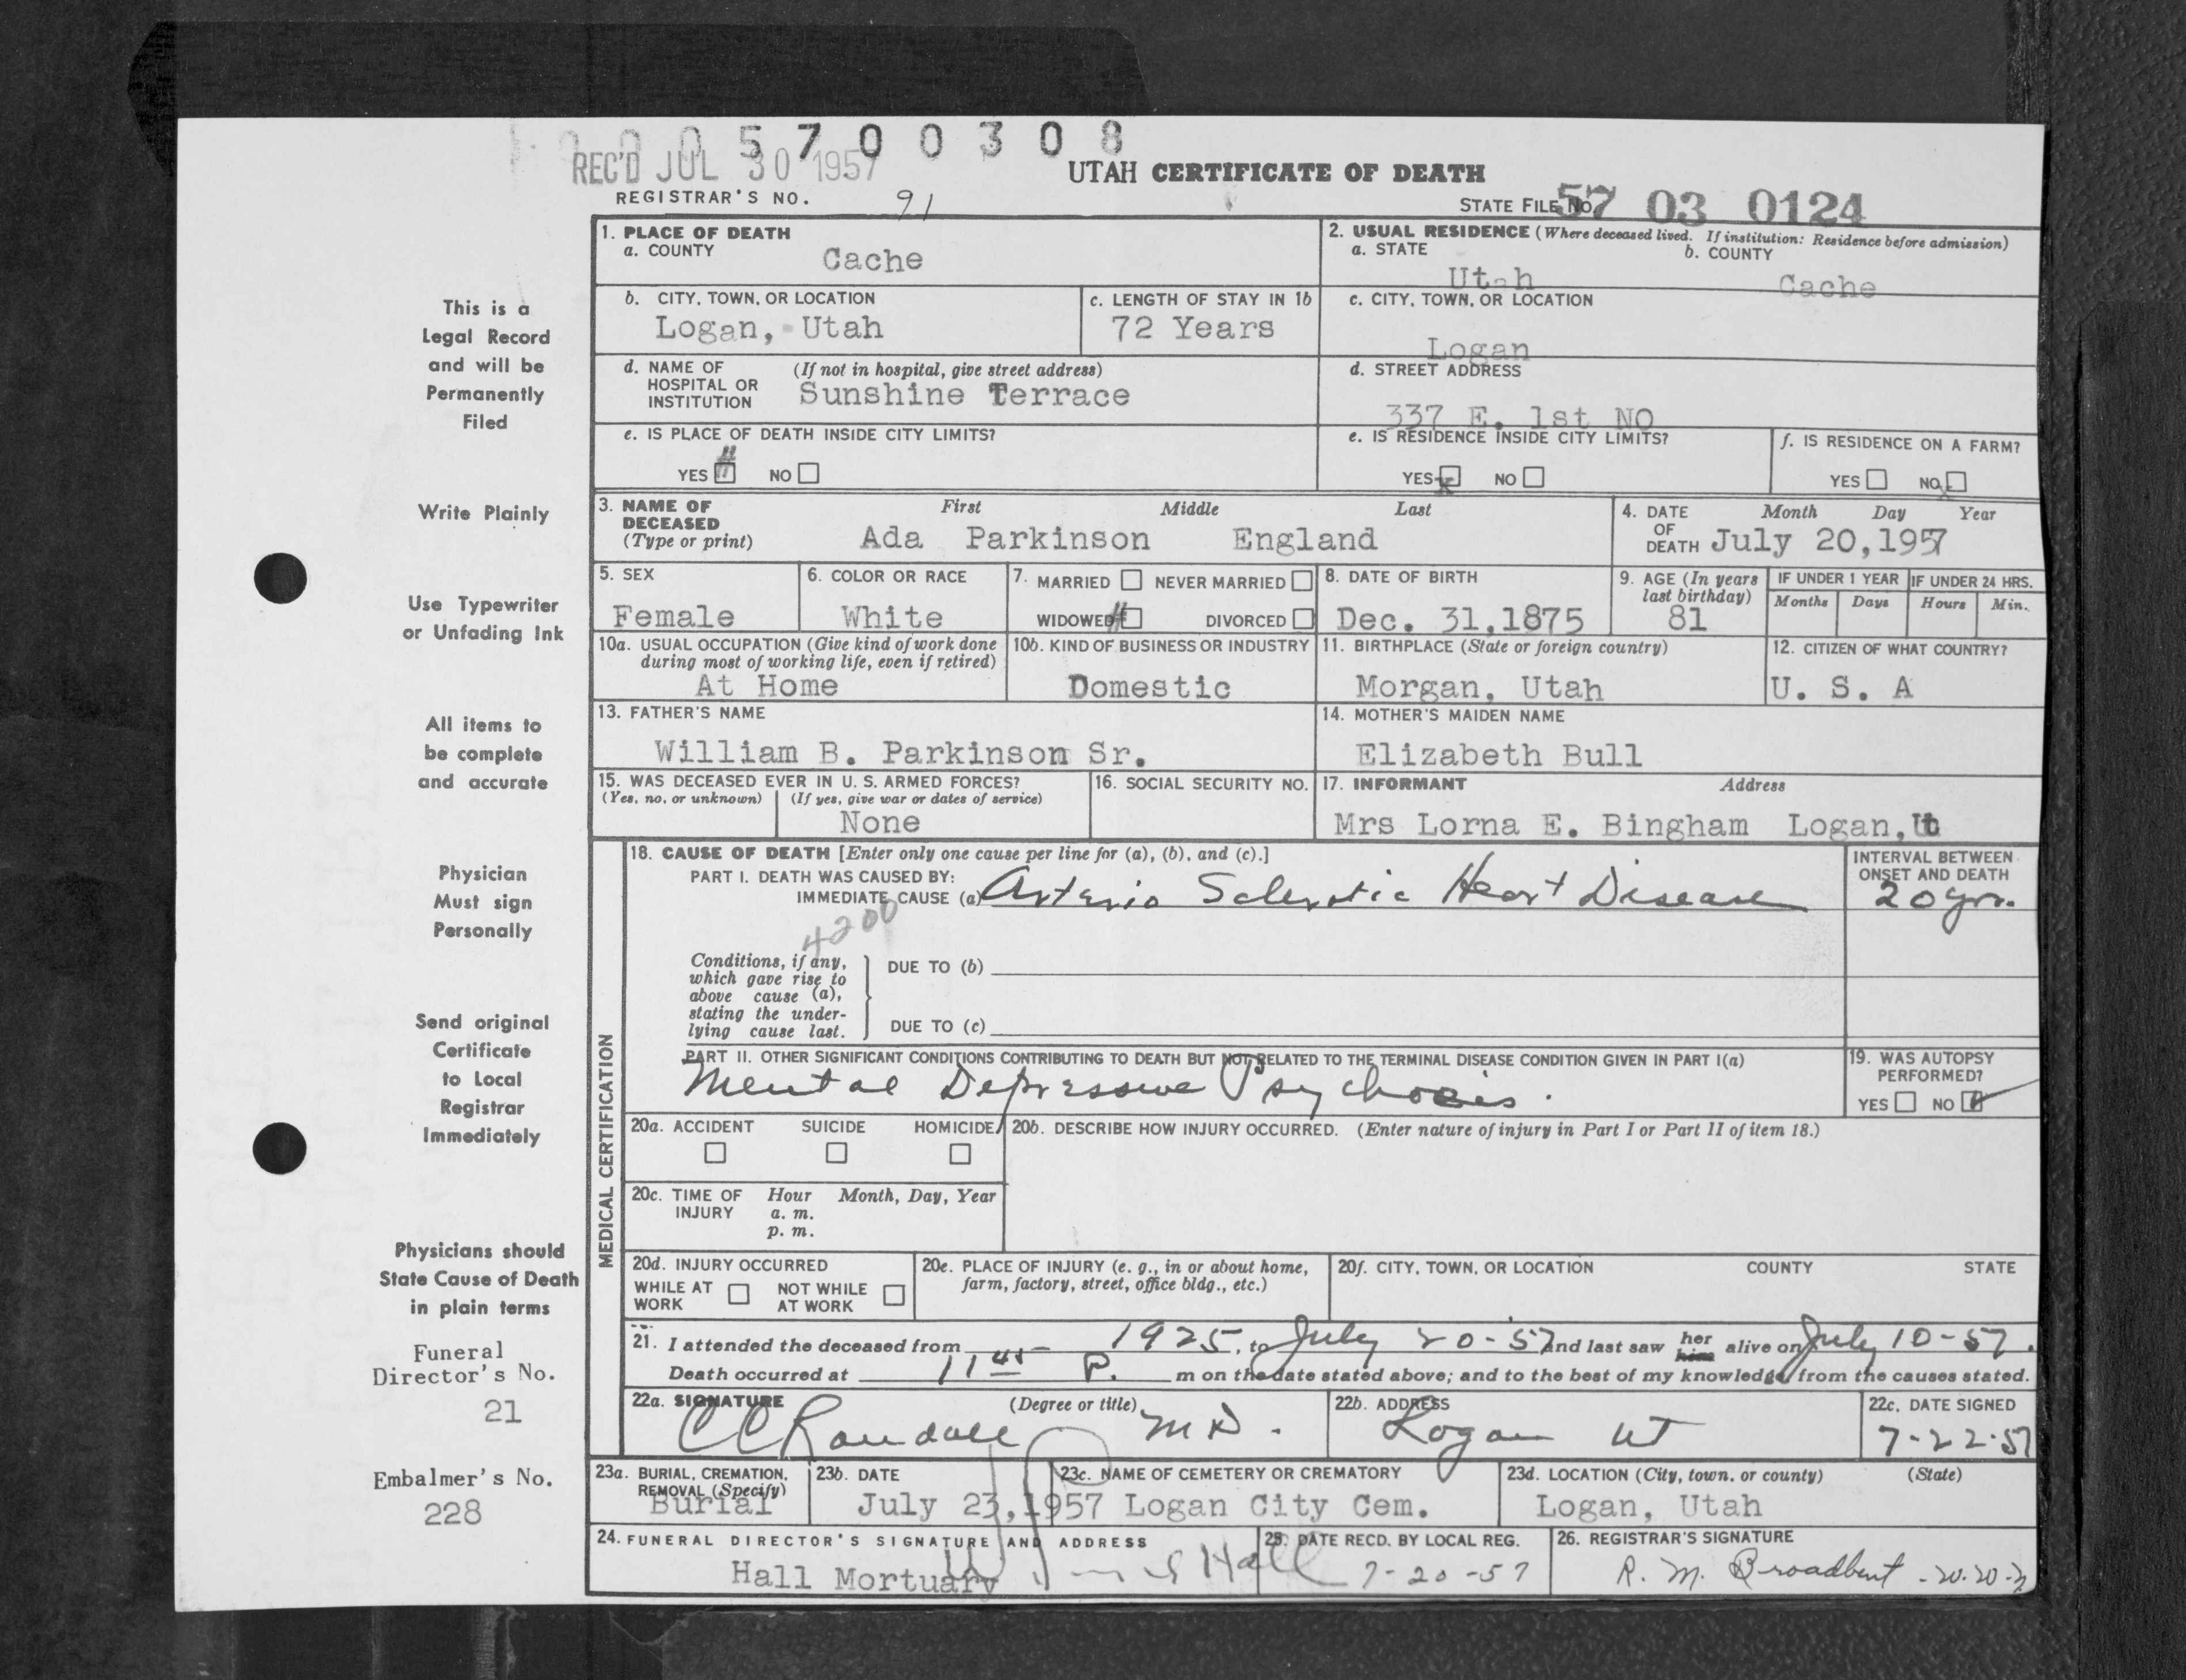 0 0 0 5 7 0 0 3 0 8
REC'D JUL 30 1957
UTAH CERTIFICATE OF DEATH
REGISTRAR'S NO. 91
STATE FILE NO. 57 03 0124
This is a
Legal Record
and will be
Permanently
Filed
Write Plainly
Use Typewriter
or Unfading Ink
All items to
be complete
and accurate
Physician
Must sign
Personally
Send original
Certificate
to Local
Registrar
Immediately
Physicians should
State Cause of Death
in plain terms
Funeral
Director's No.
21
Embalmer's No.
228
1. PLACE OF DEATH
a. COUNTY
Cache
2. USUAL RESIDENCE (Where deceased lived. If institution: Residence before admission)
a. STATE b. COUNTY
Utah Cache
b. CITY, TOWN, OR LOCATION
Logan, Utah
c. LENGTH OF STAY IN 1b
72 Years
c. CITY, TOWN, OR LOCATION
Logan
d. NAME OF (If not in hospital, give street address)
HOSPITAL OR
INSTITUTION
Sunshine Terrace
d. STREET ADDRESS
337 E. 1st NO
e. IS PLACE OF DEATH INSIDE CITY LIMITS?
YES # NO
e. IS RESIDENCE INSIDE CITY LIMITS?
YES x NO
f. IS RESIDENCE ON A FARM?
YES NO x
3. NAME OF First Middle Last
DECEASED
(Type or print)
Ada Parkinson England
4. DATE Month Day Year
OF
DEATH July 20,1957
5. SEX
Female
6. COLOR OR RACE
White
7. MARRIED NEVER MARRIED
WIDOWED # DIVORCED
8. DATE OF BIRTH
Dec. 31,1875
9. AGE (In years
last birthday)
81
IF UNDER 1 YEAR IF UNDER 24 HRS.
Months Days Hours Min.
10a. USUAL OCCUPATION (Give kind of work done
during most of working life, even if retired)
At Home
10b. KIND OF BUSINESS OR INDUSTRY
Domestic
11. BIRTHPLACE (State or foreign country)
Morgan, Utah
12. CITIZEN OF WHAT COUNTRY?
U. S. A
13. FATHER'S NAME
William B. Parkinson Sr.
14. MOTHER'S MAIDEN NAME
Elizabeth Bull
15. WAS DECEASED EVER IN U. S. ARMED FORCES?
(Yes, no, or unknown) (If yes, give war or dates of service)
None
16. SOCIAL SECURITY NO.
17. INFORMANT Address
Mrs Lorna E. Bingham Logan, Ut
MEDICAL CERTIFICATION
18. CAUSE OF DEATH [Enter only one cause per line for (a), (b), and (c).]
PART I. DEATH WAS CAUSED BY:
IMMEDIATE CAUSE (a) Arterio Sclerotic Heart Disease
INTERVAL BETWEEN
ONSET AND DEATH
20 yrs.
4200
Conditions, if any,
which gave rise to
above cause (a),
stating the under-
lying cause last.
DUE TO (b)
DUE TO (c)
PART II. OTHER SIGNIFICANT CONDITIONS CONTRIBUTING TO DEATH BUT NOT RELATED TO THE TERMINAL DISEASE CONDITION GIVEN IN PART I(a)
Mental Depressive Psychosis.
19. WAS AUTOPSY
PERFORMED?
YES NO
20a. ACCIDENT SUICIDE HOMICIDE
20b. DESCRIBE HOW INJURY OCCURRED. (Enter nature of injury in Part I or Part II of item 18.)
20c. TIME OF Hour Month, Day, Year
INJURY a. m.
p. m.
20d. INJURY OCCURRED
WHILE AT NOT WHILE
WORK AT WORK
20e. PLACE OF INJURY (e. g., in or about home,
farm, factory, street, office bldg., etc.)
20f. CITY, TOWN, OR LOCATION COUNTY STATE
21. I attended the deceased from 1925, to July 20-57 and last saw her him alive on July 10-57.
Death occurred at 11 45 P. m on the date stated above; and to the best of my knowledge, from the causes stated.
22a. SIGNATURE (Degree or title)
CC Randall MD.
22b. ADDRESS
Logan Ut
22c. DATE SIGNED
7-22-57
23a. BURIAL, CREMATION,
REMOVAL (Specify)
Burial
23b. DATE
July 23,1957
23c. NAME OF CEMETERY OR CREMATORY
Logan City Cem.
23d. LOCATION (City, town, or county) (State)
Logan, Utah
24. FUNERAL DIRECTOR'S SIGNATURE AND ADDRESS
Hall Mortuary Hall
25. DATE RECD. BY LOCAL REG.
7-20-57
26. REGISTRAR'S SIGNATURE
R. M. Broadbent